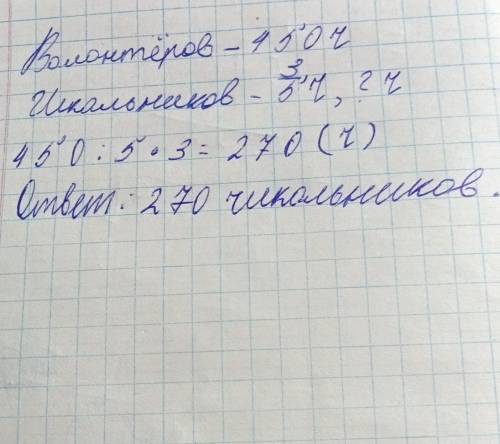 Волонтёров - 450 ч
Шкальников - 3/5 ч, ? ч
450 : 5 • 3 = 270 (ч)
Ответ: 270 шкальников.